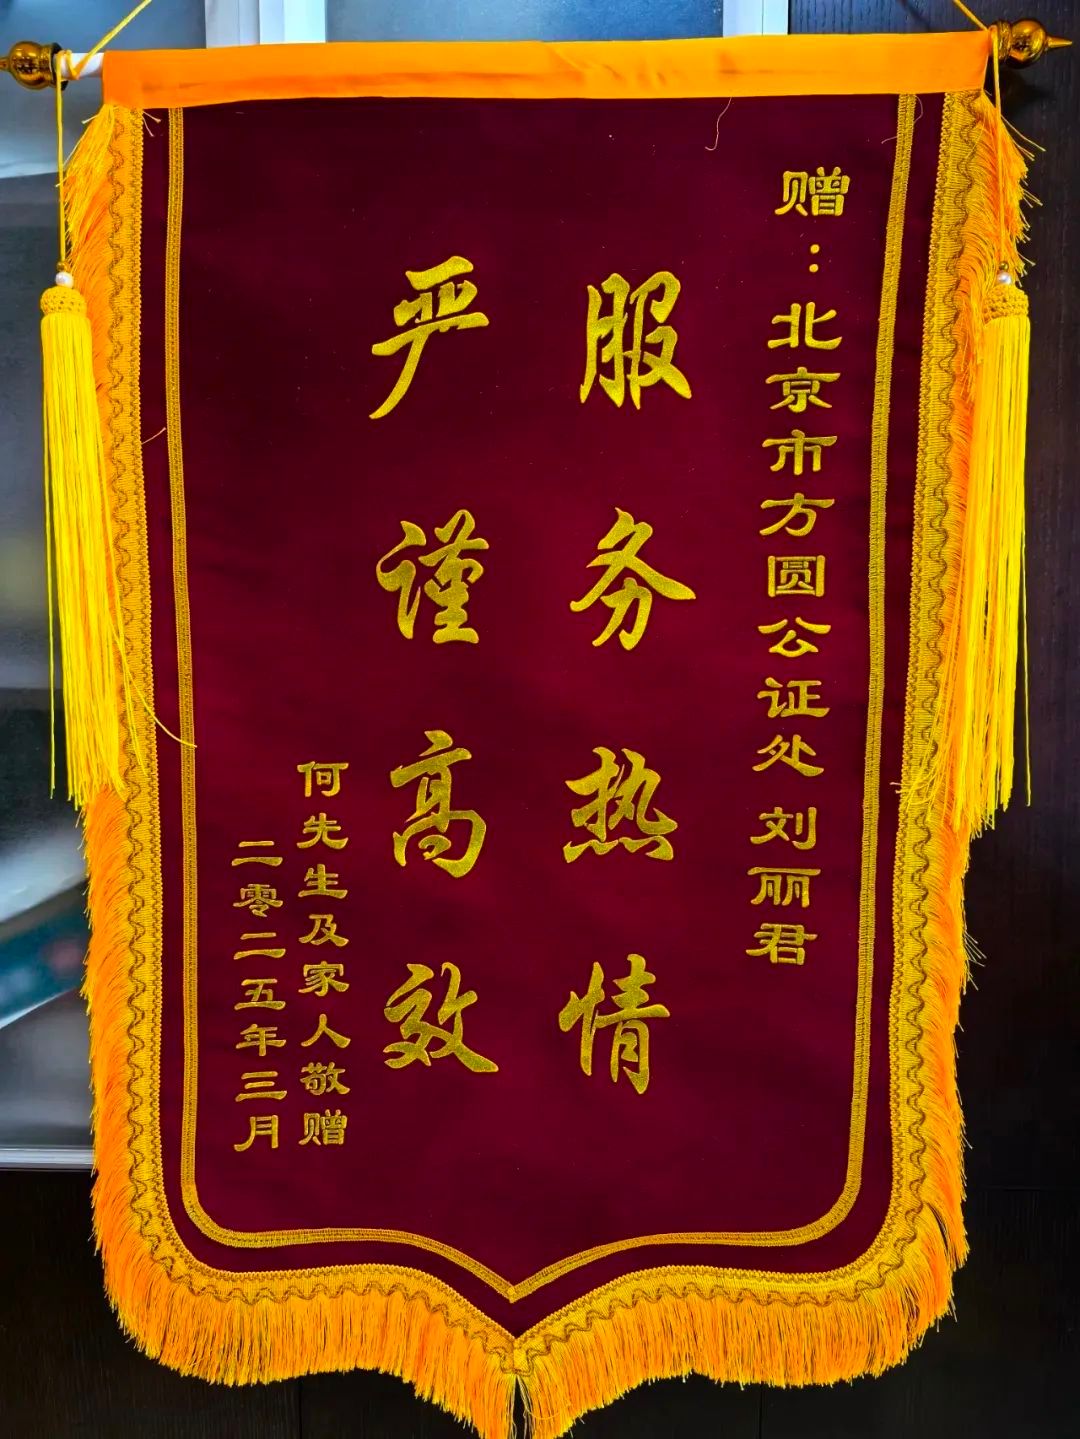 赠：北京市方圆公证处 刘丽君
服务热情
严谨高效
何先生及家人敬赠
二零二五年三月